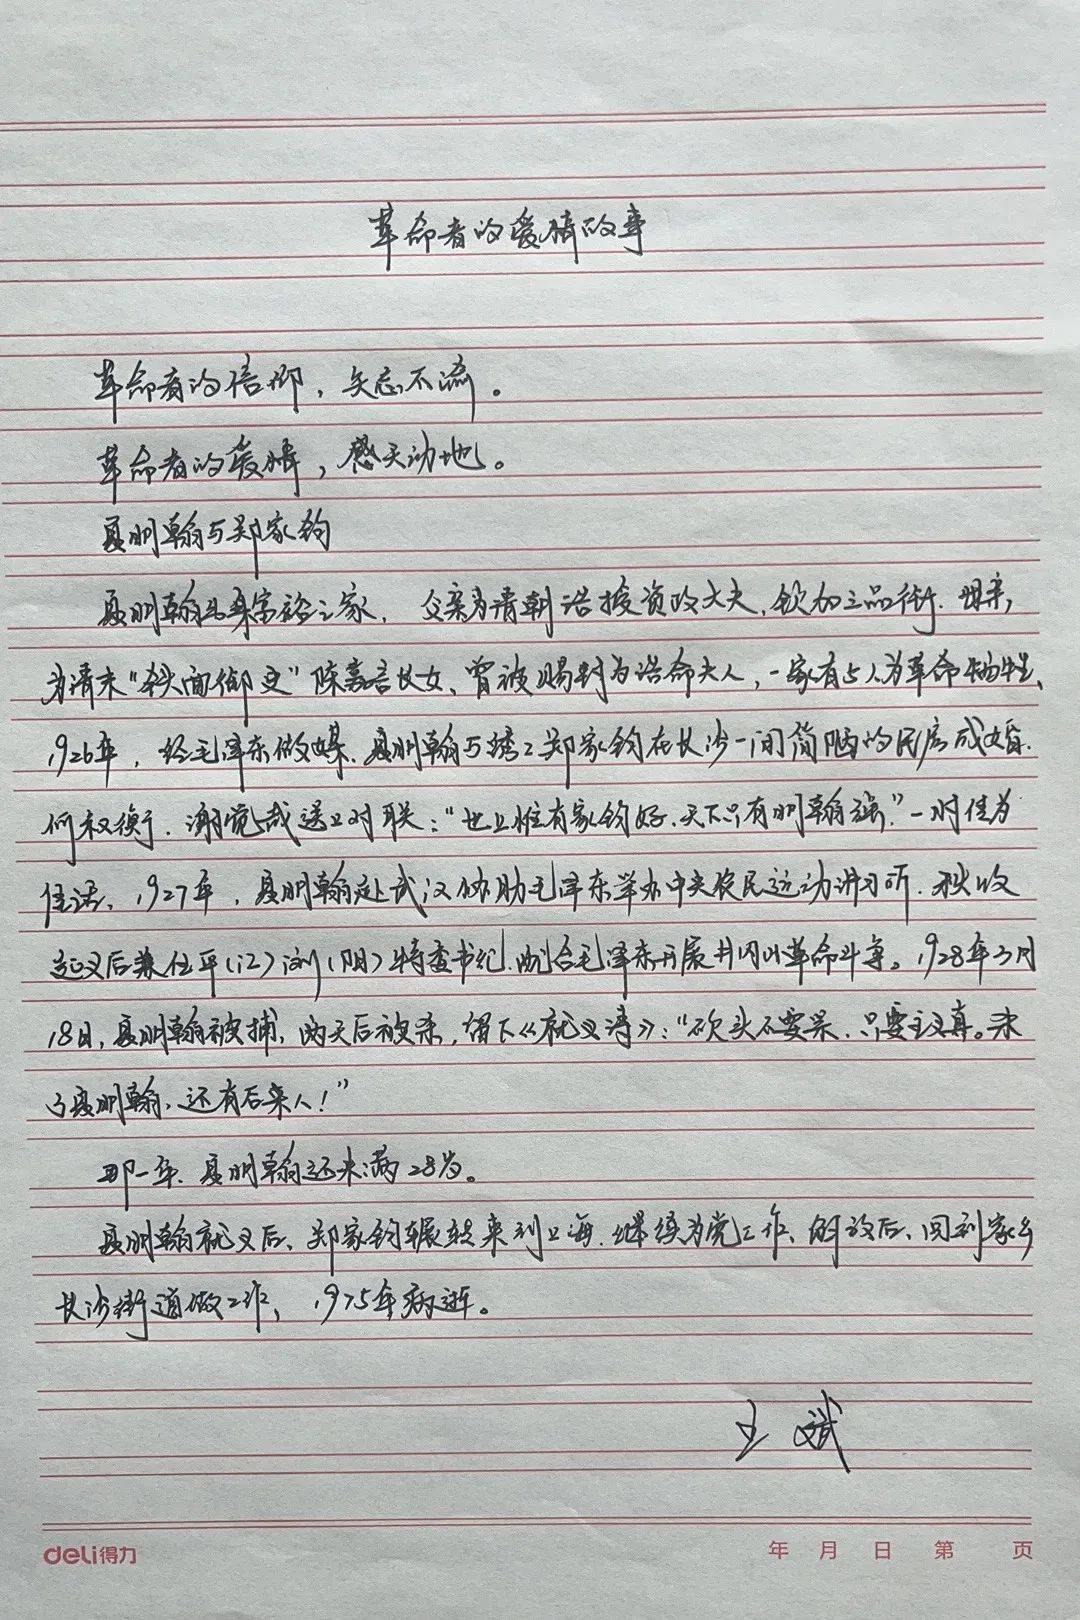 革命者的爱情故事
革命者的信仰，矢志不渝。
革命者的爱情，感天动地。
夏明翰与郑家钧
夏明翰出身富裕之家，父亲为清朝诰授资政大夫，钦加三品衔，母亲
为清末“铁面御史”陈嘉言长女、曾被赐封为诰命夫人，一家有5人为革命牺牲、
1926年，经毛泽东做媒、夏明翰与绣工郑家钧在长沙一间简陋的民房成婚.
何叔衡、谢觉哉送上对联：“世上惟有家钧好、天下只有明翰强”。一时传为
佳话、1927年，夏明翰赴武汉协助毛泽东举办中央农民运动讲习所.秋收
起义后兼任平（江）浏（阳）特委书记.配合毛泽东开展井冈山革命斗争。1928年3月
18日，夏明翰被捕，两天后被杀，留下《就义诗》：“砍头不要紧.只要主义真。杀
了夏明翰，还有后来人！”
那一年、夏明翰还未满28岁。
夏明翰就义后、郑家钧辗转来到上海.继续为党工作、解放后、回到家乡
长沙街道做工作，1975年病逝。
王斌
deli得力
年 月 日 第 页